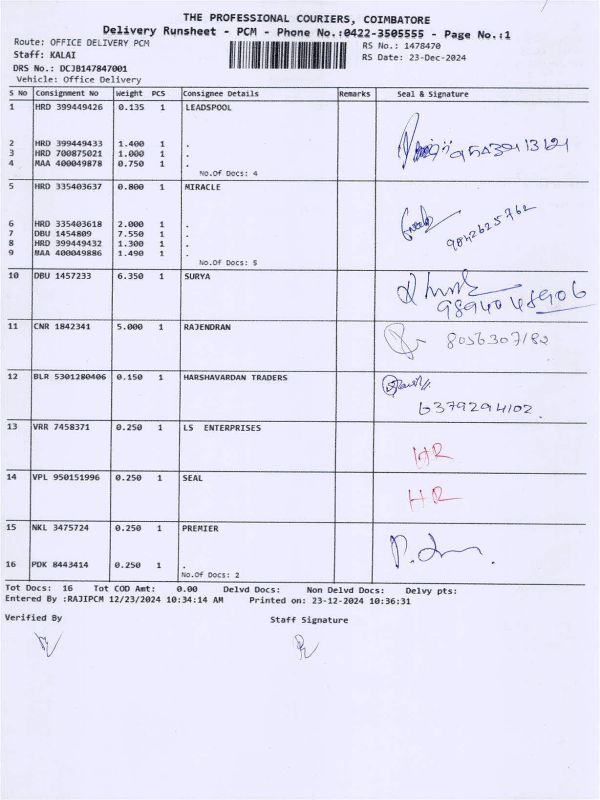 THE PROFESSIONAL COURIERS, COIMBATORE
Delivery Runsheet - PCM - Phone No.:0422-3505555 - Page No.:1
Route: OFFICE DELIVERY PCM
RS No.: 1478470
Staff: KALAI
RS Date: 23-Dec-2024
DRS No.: DCJB147847001
Vehicle: Office Delivery
S No Consignment No Weight PCS Consignee Details Remarks Seal & Signature
1 HRD 399449426 0.135 1 LEADSPOOL
2 HRD 399449433 1.400 1 .
3 HRD 700875021 1.000 1 .
4 MAA 400049878 0.750 1 .
No.Of Docs: 4
5 HRD 335403637 0.800 1 MIRACLE
6 HRD 335403618 2.000 1 .
7 DBU 1454809 7.550 1 .
8 HRD 399449432 1.300 1 .
9 MAA 400049886 1.490 1 .
9042625762
No.Of Docs: 5
10 DBU 1457233 6.350 1 SURYA
9894048906
11 CNR 1842341 5.000 1 RAJENDRAN
8056307182
12 BLR 5301280406 0.150 1 HARSHAVARDAN TRADERS
6379294102.
13 VRR 7458371 0.250 1 LS ENTERPRISES
HR
14 VPL 950151996 0.250 1 SEAL
HR
15 NKL 3475724 0.250 1 PREMIER
16 PDK 8443414 0.250 1 .
No.Of Docs: 2
Tot Docs: 16 Tot COD Amt: 0.00 Delvd Docs: Non Delvd Docs: Delvy pts:
Entered By :RAJIPCM 12/23/2024 10:34:14 AM Printed on: 23-12-2024 10:36:31
Verified By
Staff Signature